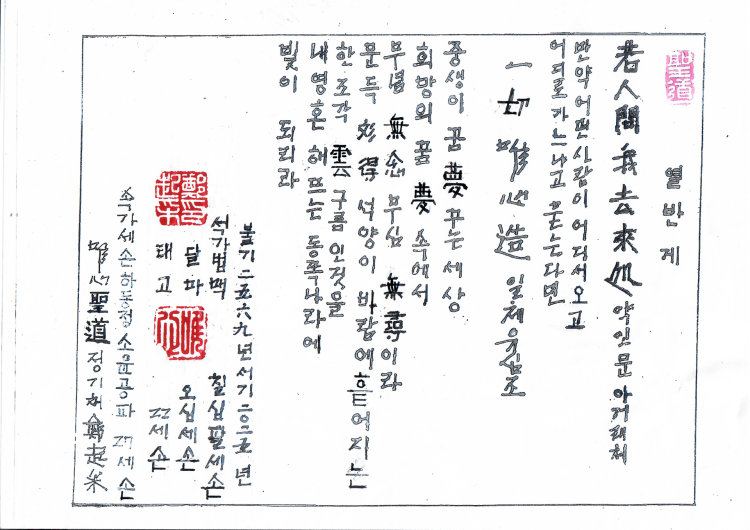 聖道
열반게
若人問我去來処 약인문아거래처
만약 어떤 사람이 어디서 오고
어디로 가느냐고 묻는다면
一切唯心造 일체유심조
중생이 꿈 夢 꾸는 세상
희망의 꿈 夢 속에서
무념 無念 무심 無尋이라
문득 妙得 석양이 바람에 흩어지는
한 조각 雲 구름인것을
내 영혼 해 뜨는 동쪽나라에
빛이 되리라
불기 二五六九년 서기 二〇二五년
석가법맥 칠십팔세손
달마 오십세손
태고 세손
속가세손 하동정 소윤공파 세손
唯心聖道 정기미 鄭起米